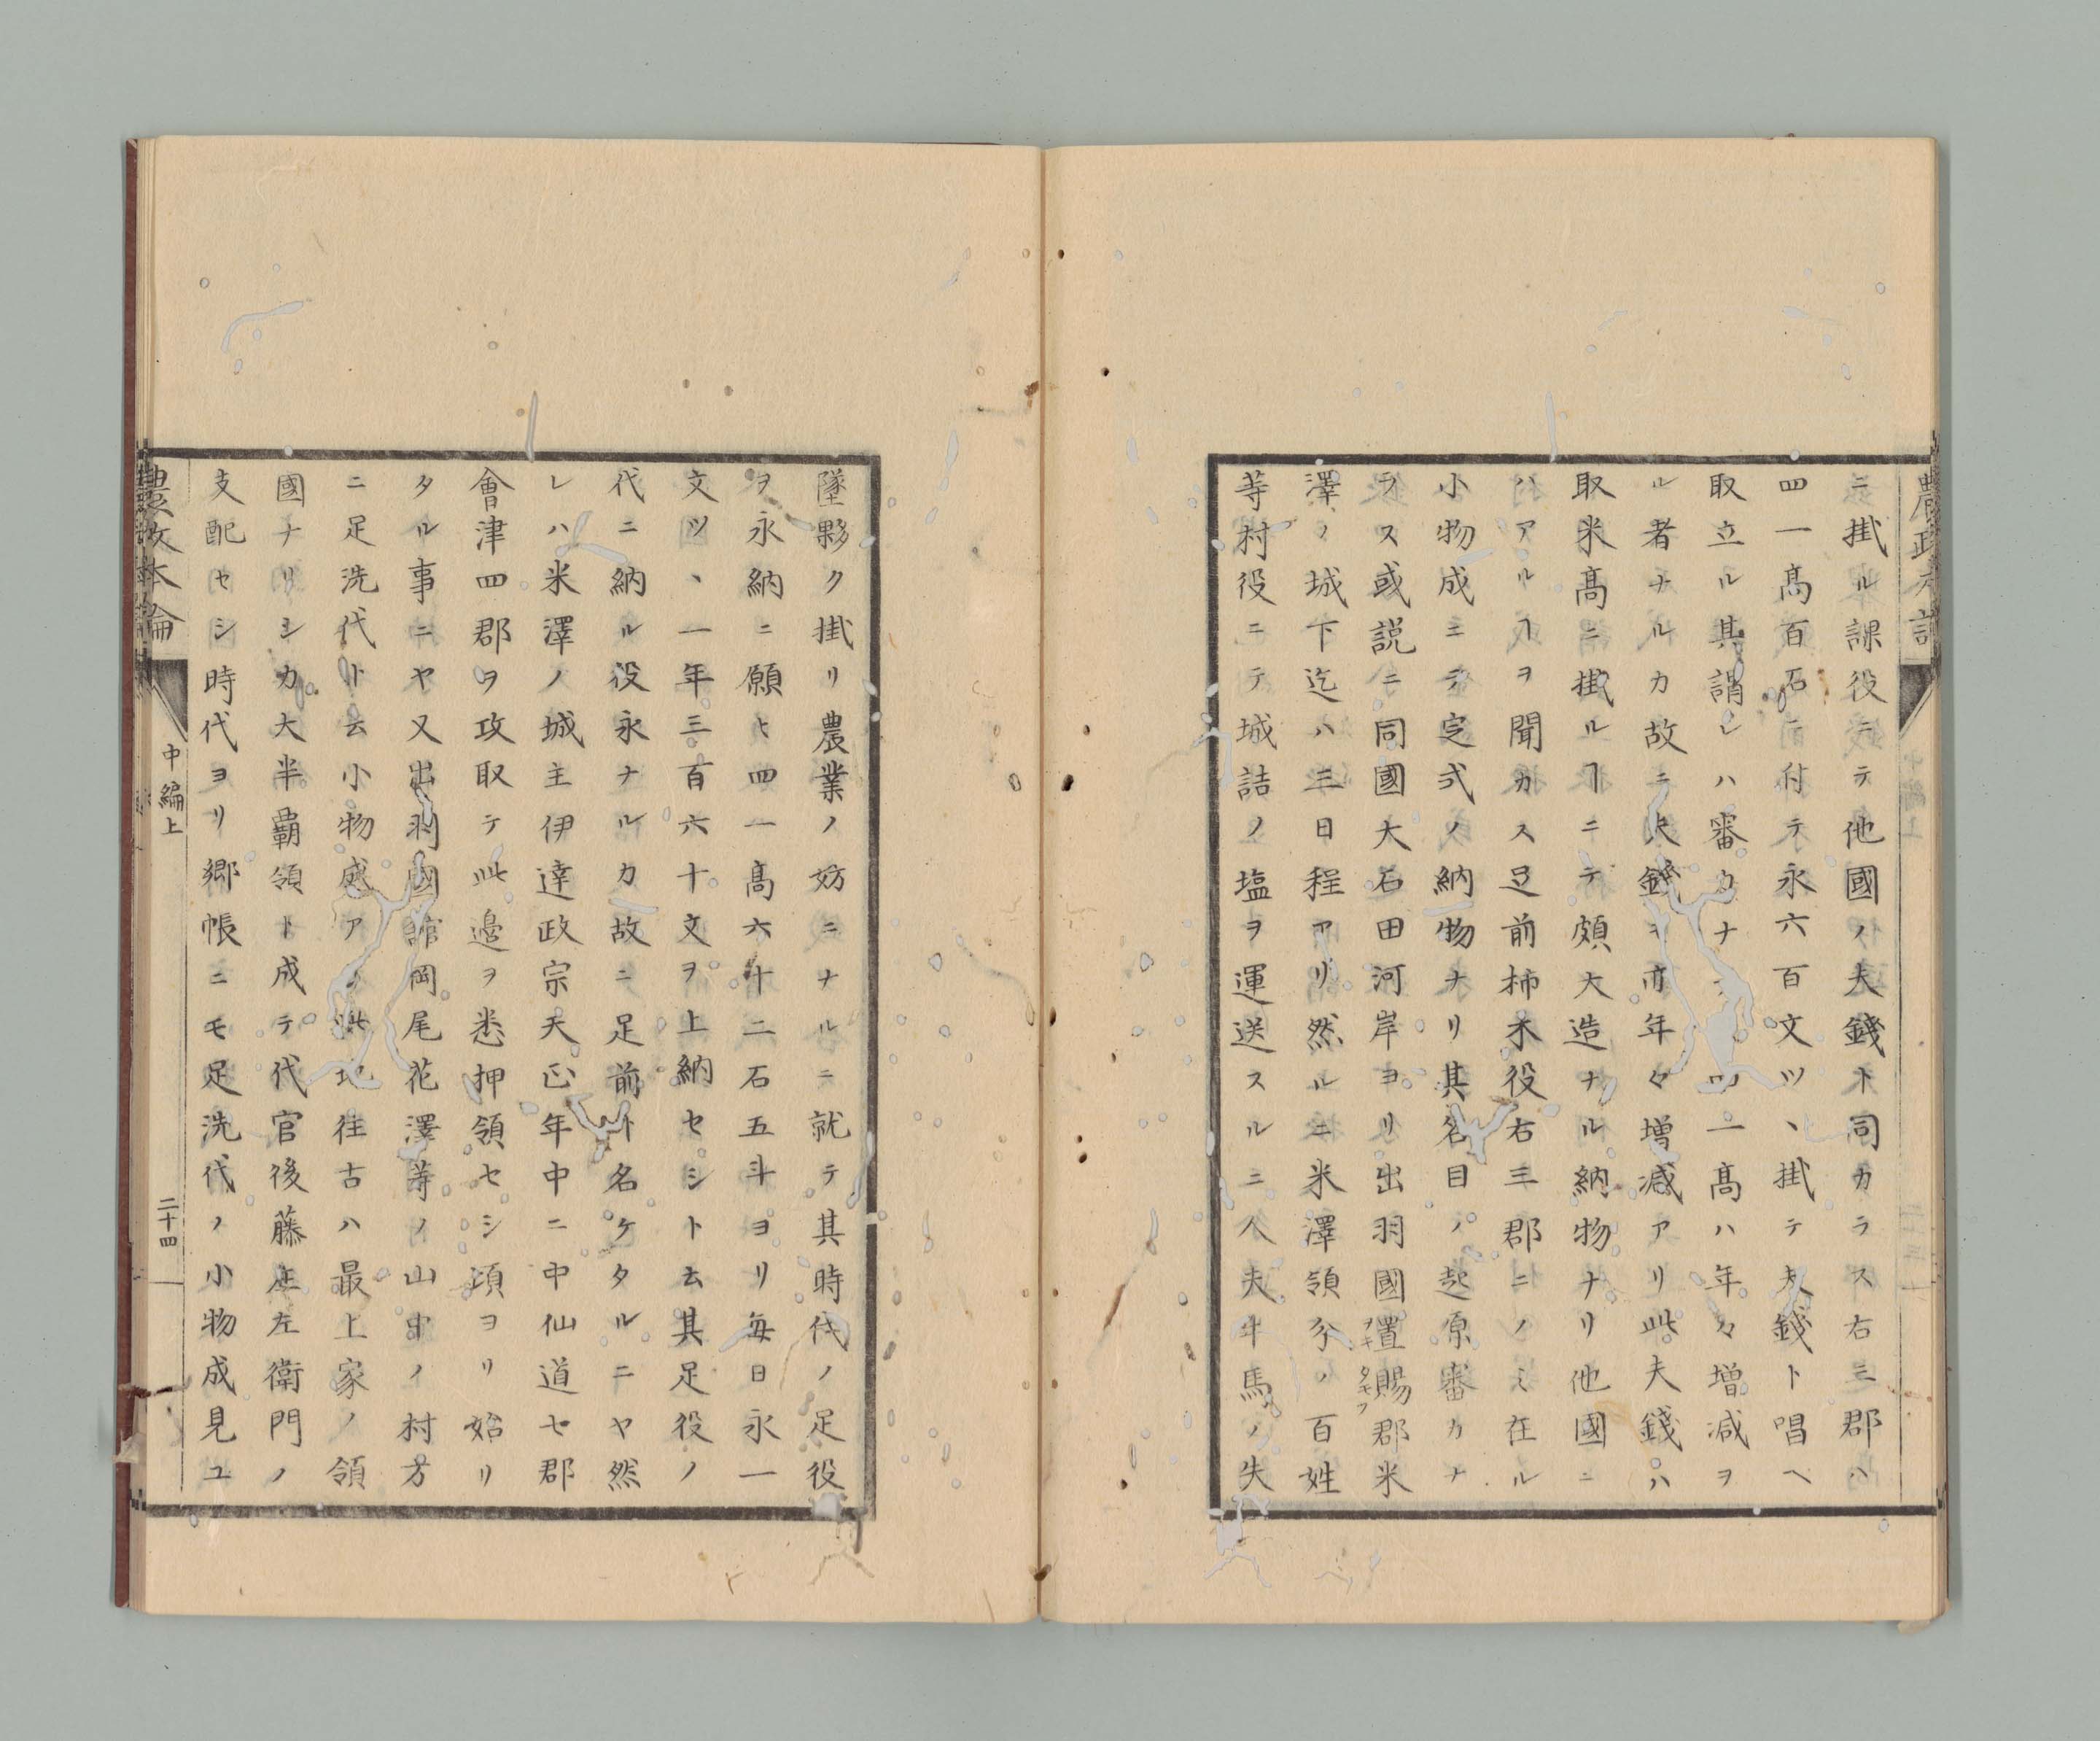 ニ掛ル課役ニテ他國ノ夫錢ト同カラス右三郡ハ
四一髙百石ニ付テ永六百文ツヽ掛テ夫錢ト唱ヘ
取立ル其謂レハ審カナ四一髙ハ年々増减ヲ
ル者ナルカ故ニ夫錢ヲ亦年々増减アリ此夫錢ハ
取米髙ニ掛ルヿニテ頗大造ナル納物ナリ他國ニ
ハアルヿヲ聞カス足前柿木役右三郡ニノミ在ル
小物成ニテ定式ノ納物ナリ其名目ノ起原審カナ
ラス或説ニ同國大石田河岸ヨリ出羽國置賜郡米
澤ノ城下迄ハ三日程アリ然ルニ米澤領分ノ百姓
等村役ニテ城詰ノ塩ヲ運送スルニ人夫牛馬ノ失
墜夥ク掛リ農業ノ妨ニナルニ就テ其時代ノ足役
ヲ永納ニ願ヒ四一髙六十二石五斗ヨリ毎日永一
文ツヽ一年三百六十文ヲ上納セシト云其足役ノ
代ニ納ル役永ナルカ故ニ足前ト名ケタルニヤ然
レハ米澤ノ城主伊達政宗天正年中ニ中仙道七郡
會津四郡ヲ攻取テ此邉ヲ悉押領セシ項ヨリ始リ
タル事ニヤ又出羽國舘岡尾花澤等ノ山中ノ村方
ニ足洗代ト云小物成アリ此地往古ハ最上家ノ領
國ナリシカ大半覇領ト成テ代官後藤庄左衛門ノ
支配セシ時代ヨリ郷帳ニモ足洗代ノ小物成見ユ
農政本論
中編上
二十四